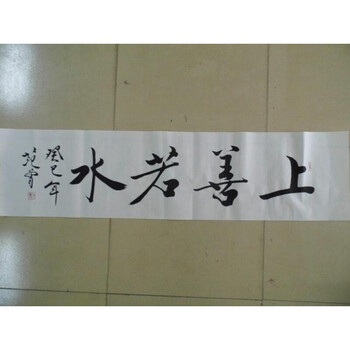 上善若水
癸巳年